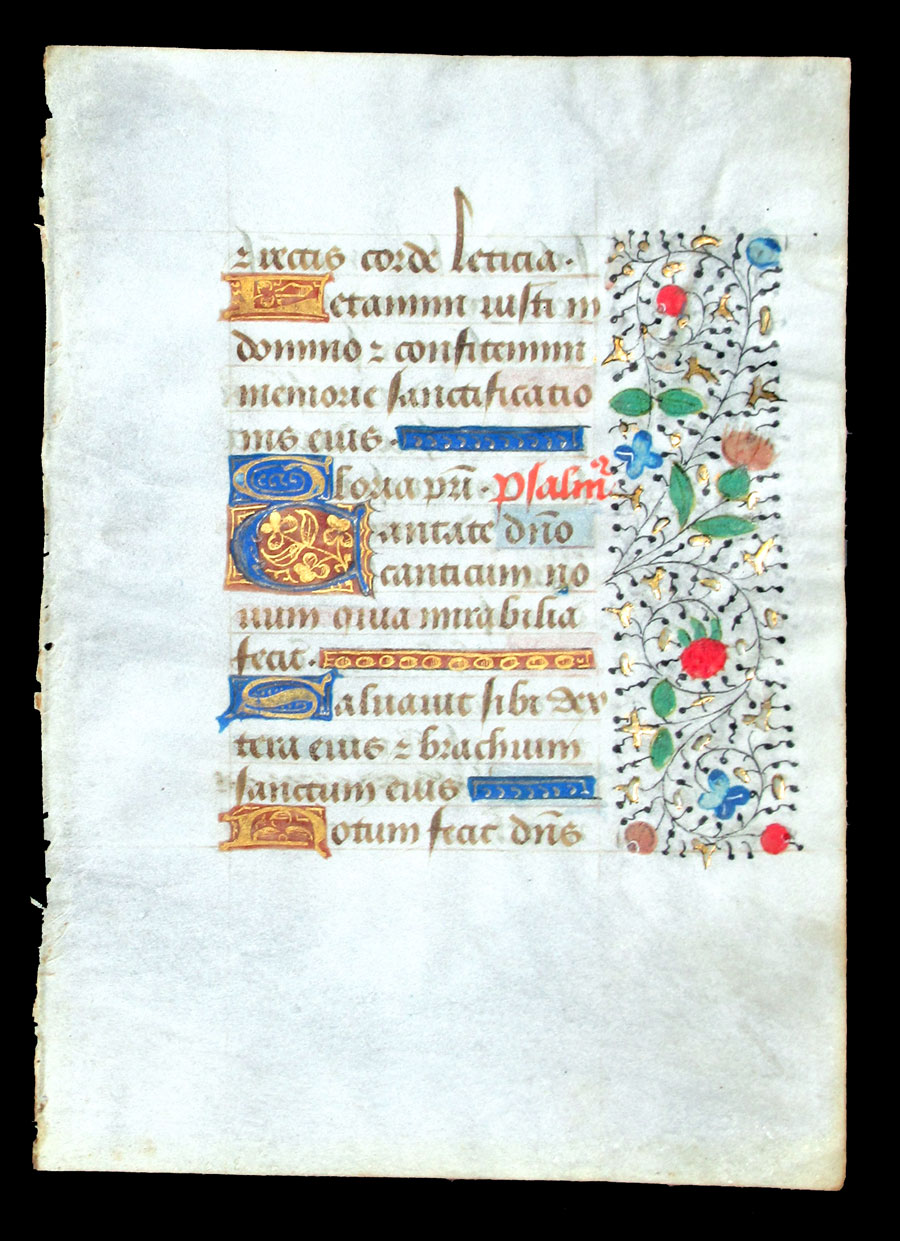 ⁊ rectis corde leticia.
Letamini iusti in
domino ⁊ confitemini
memorie sanctificatio
nis eius.
Gloria pr̄i. psalm̄ꝰ
Cantate dn̄o
canticum no
uum quia mirabilia
fecit.
Saluauit sibi dex
tera eius ⁊ brachium
sanctum eius
Notum fecit dn̄s